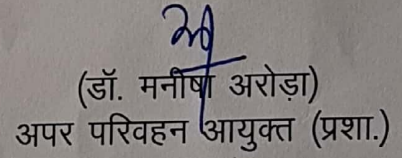 (डॉ. मनीषा अरोड़ा)
अपर परिवहन आयुक्त (प्रशा.)